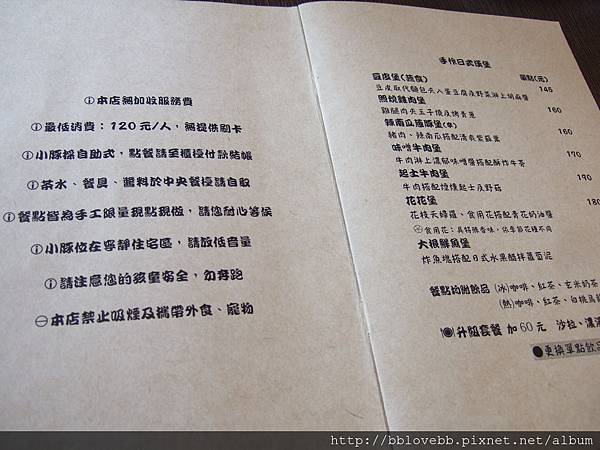 ⓘ本店無加收服務費
ⓘ最低消費：120元/人，無提供刷卡
ⓘ小豚採自助式，點餐請至櫃檯付款結帳
ⓘ茶水、餐具、醬料於中央餐檯請自取
ⓘ餐點皆為手工限量現點現做，請您耐心等候
ⓘ小豚位在寧靜住宅區，請放低音量
ⓘ請注意您的孩童安全，勿奔跑
⊖本店禁止吸煙及攜帶外食、寵物
手作日式漢堡
豆皮堡(蔬食) 單點(元)
豆皮取代麵包夾入蛋豆腐及野菜淋上胡麻醬 145
照燒雞肉堡
雞腿肉夾玉子燒及烤青蔥 160
辣南瓜豬豚堡(辛)
豬肉、辣南瓜搭配清爽紫蘇葉 160
味噌牛肉堡
牛肉淋上濃郁味噌醬搭配酥炸牛蒡 170
起士牛肉堡
牛肉搭配煙燻起士及野菇 190
花花堡 180
花枝天婦羅、食用花搭配青花奶油醬
食用花：具特殊香味，依季節花種不同
大根鱈魚堡
炸魚塊搭配日式水果醋拌蘿蔔泥
餐點均附飲品 (冰)咖啡、紅茶、玄米奶茶
(熱)咖啡、紅茶、白桃烏龍
升級套餐 加60元 沙拉、濃湯
●更換單點飲品
http://bblovebb.pixnet.net/album